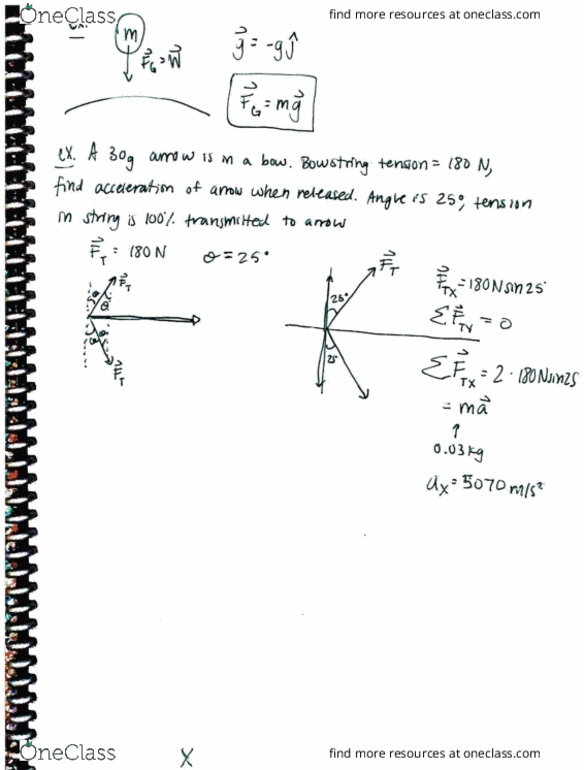 OneClass
find more resources at oneclass.com
ex.
m
F⃗_G = W⃗
g⃗ = -gĵ
F⃗_G = mg⃗
ex. A 30g arrow is in a bow. Bowstring tension = 180 N,
find acceleration of arrow when released. Angle is 25°, tension
in string is 100% transmitted to arrow
F⃗_T = 180N θ = 25°
F⃗_T
θ θ
θ θ
F⃗_T
F⃗_T
25°
25
F⃗_TX = 180N sin25°
ΣF⃗_TY = 0
ΣF⃗_TX = 2 · 180N sin25
= ma⃗
↑
0.03kg
a_x = 5070 m/s²
OneClass
X
find more resources at oneclass.com